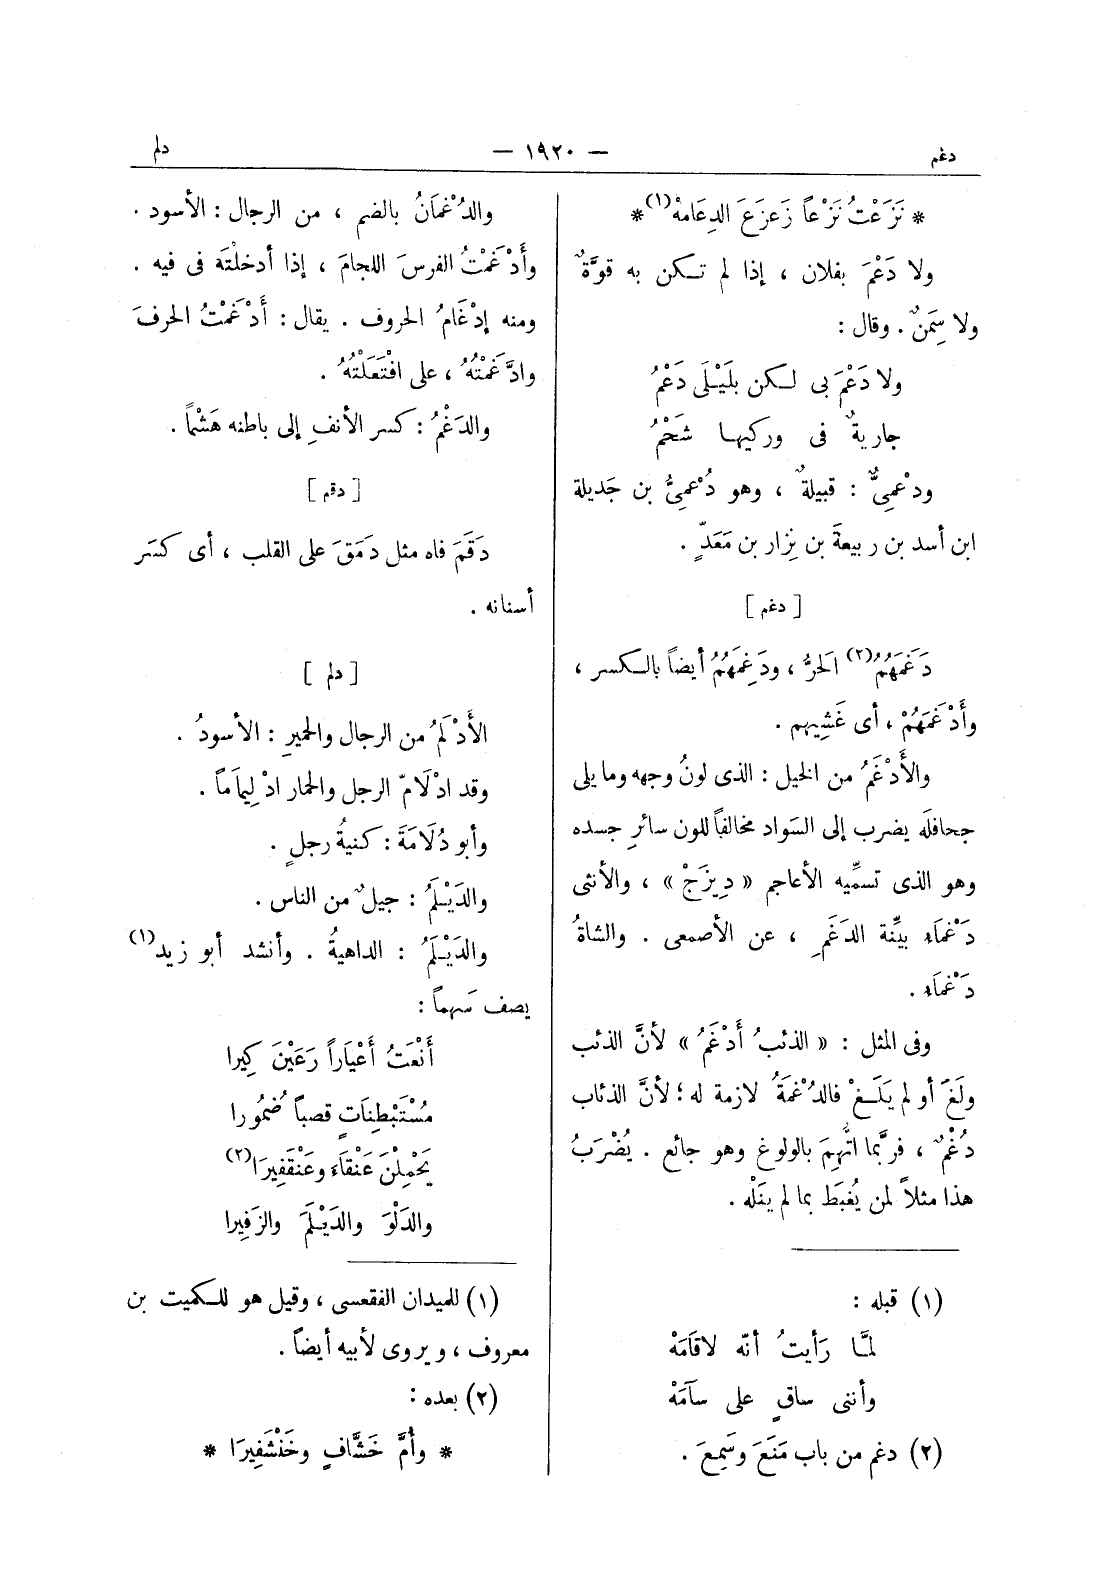 دغم
— ١٩٢٠ —
دلم
* نَزَعْتُ نَزْعاً زَعزَعَ الدِعَامهْ(١) *
ولا دَعْمَ بفلان ، إذا لم تكن به قوَّةٌ
ولا سِمَنٌ . وقال :
ولا دَعْمَ بى لكن بلَيْلَى دَعْمُ
جاريةٌ فى وركيها شَحْمُ
ودُعْمِىٌّ : قبيلةٌ ، وهو دُعْمِىُّ بن جَديلة
ابن أسد بن ربيعةَ بن نِزار بن مَعَدّ .
[ دغم ]
دَغَمَهُمُ(٢) الَحرُّ ، ودَغِمَهُمُ أيضاً بالكسر ،
وأَدْغَمَهُمْ ، أى غَشِيهم .
والأَدْغَمُ من الخيل : الذى لونُ وجهه وما يلى
جحافلَه يضرب إلى السَواد مخالفاً للون سائرِ جسده
وهو الذى تسمِّيه الأعاجم « دِيزَجْ » ، والأنثى
دَغْمَاء بيِّنة الدَغَمِ ، عن الأصمعى . والشاةُ
دَغْمَاء .
وفى المثل : « الذئبُ أَدْغَمُ » لأنَّ الذئب
ولَغَ أو لم يَلَغْ فالدُغْمَةُ لازمة له ؛ لأنَّ الذئاب
دُغْمٌ ، فربَّما اتُّهِمَ بالولوغ وهو جائع . يُضْرَبُ
هذا مثلاً لمن يُغبَط بما لم ينَلْه .
(١) قبله :
لمَّا رَأيتُ أنّه لاقَامَهْ
وأننى ساقٍ على سآمَهْ
(٢) دغم من باب مَنَعَ وسَمِعَ .
والدُغْمَانُ بالضم ، من الرجال : الأسود .
وأَدْغَمْتُ الفرسَ اللجامَ ، إذا أدخلْتَه فى فيه .
ومنه إدْغَامُ الحروف . يقال : أَدْغَمْتُ الحرفَ
وادَّغَمْتُهُ ، على افْتَعَلْتُهُ .
والدَغْمُ : كسر الأنفِ إلى باطنه هَشْماً .
[ دقم ]
دَقَمَ فاه مثل دَمَقَ على القلب ، أى كسَر
أسنانه .
[ دلم ]
الأَدْلَمُ من الرجال والحميرِ : الأسودُ .
وقد ادْلَامّ الرجل والحمار ادْلِيمَاماً .
وأبو دُلَامَةَ : كنيةُ رجلٍ .
والدَيْلَمُ : جيلٌ من الناس .
والدَيْلَمُ : الداهيةُ . وأنشد أبو زيد(١)
يصف سَهماً :
أَنْعَتُ أَعْيَاراً رَعَيْنَ كِيرا
مُسْتَبْطِنَاتٍ قصباً ضُمُورا
يَحْمِلْنَ عَنْقَاءَ وعَنْقَفِيرَا(٢)
والدَلْوَ والدَيْلَمَ والزَفِيرا
(١) للميدان الفقعسى ، وقيل هو للكميت بن
معروف ، ويروى لأبيه أيضاً .
(٢) بعده :
* وأُمَّ خَشَّافٍ وخَنْشَفِيرَا *